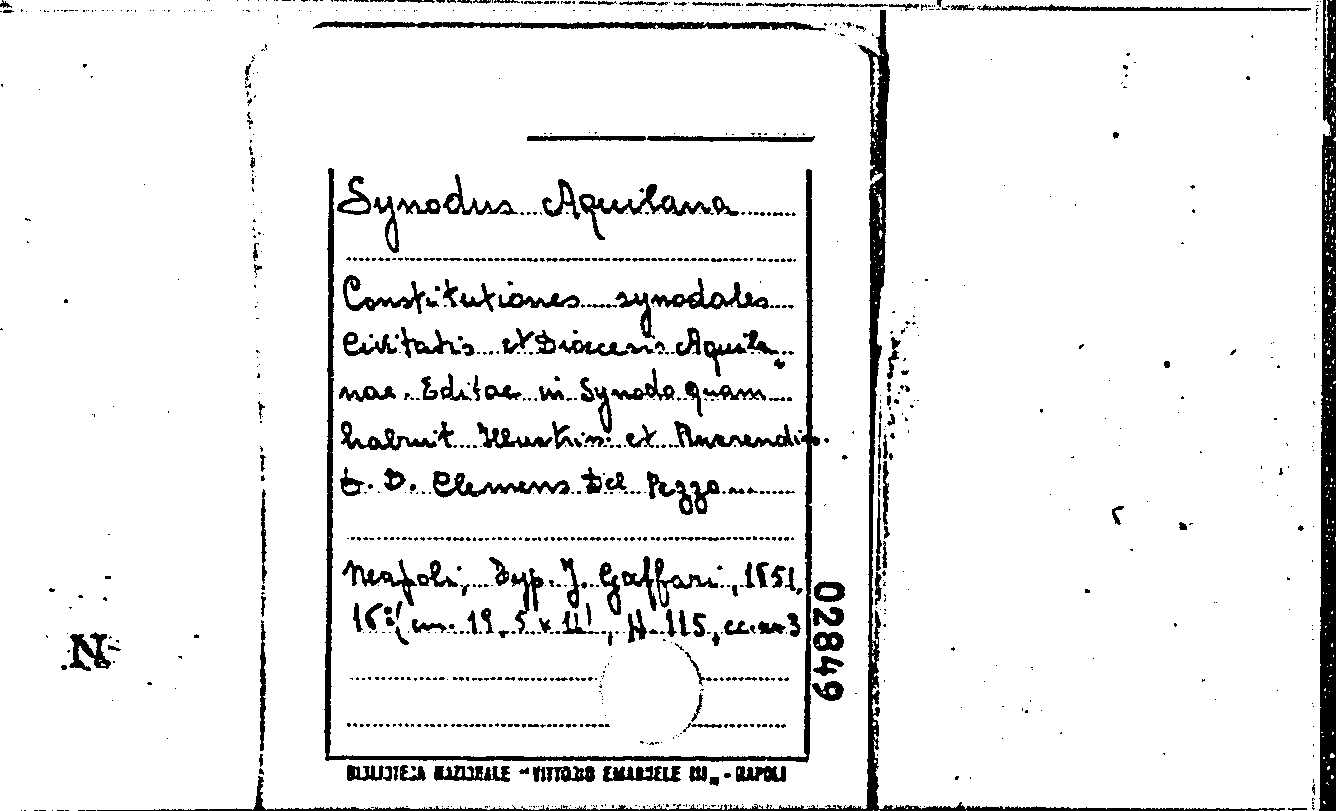 Synodus Aquilana
Constitutiones synodales
Civitatis et Diocesis Aquila„
nae. Editae in Synodo quam
habuit Illustris. et Reverendis.
D. D. Clemens Del Pezzo
Neapoli, Typ. J. Gaffari, 1651,
16°( cm. 19,5 x 14), pp. 115, cc. nn 3
02849
N
BIBLIOTECA NAZIONALE "VITTORIO EMANUELE III„ - NAPOLI